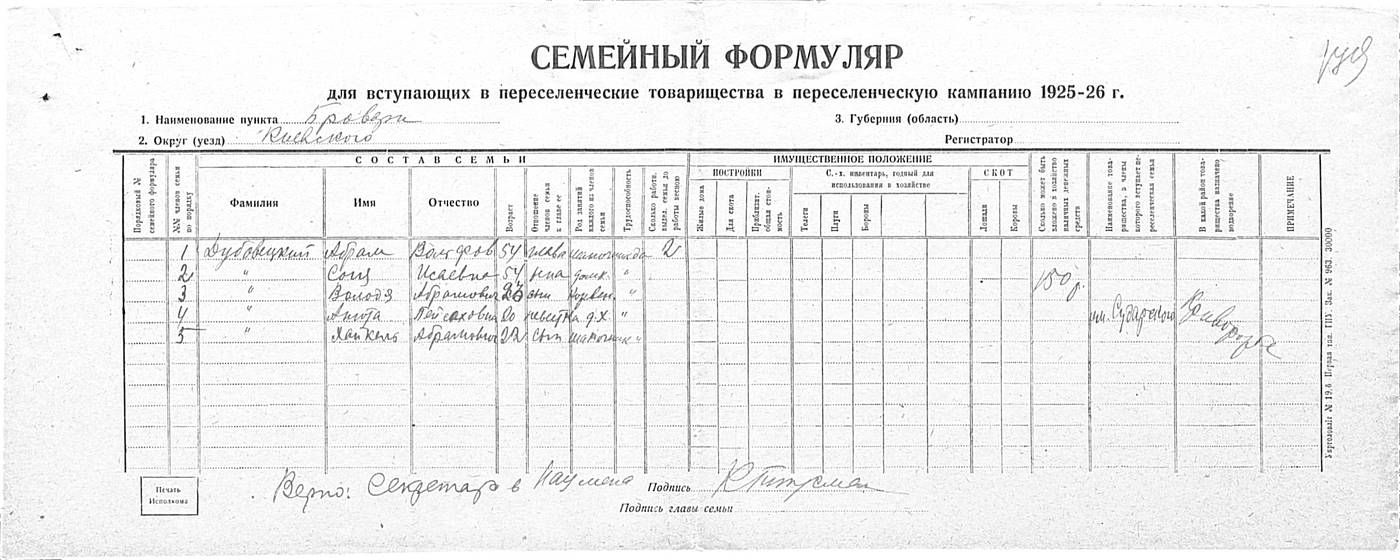 СЕМЕЙНЫЙ ФОРМУЛЯР
для вступающих в переселенческие товарищества в переселенческую кампанию 1925-26 г.
1. Наименование пункта Бровары
3. Губерния (область)
2. Округ (уезд) Киевского
Регистратор
Порядковый № семейного формуляра
№№ членов семьи по порядку
СОСТАВ СЕМЬИ
Фамилия
Имя
Отчество
Возраст
Отношение членов семьи к главе ее
Род занятий каждого из членов семьи
Трудоспособность
Сколько работн. выдел. семья до работы весною
ИМУЩЕСТВЕННОЕ ПОЛОЖЕНИЕ
ПОСТРОЙКИ
Жилые дома
Для скота
Приблизит. общая стоимость
С.-х. инвентарь, годный для использования в хозяйстве
Телеги
Плуги
Бороны
СКОТ
Лошади
Коровы
Сколько может быть вложено в хозяйство наличных денежных средств
Наименование товарищества, в члены которого вступает переселенческая семья
В какой район товарищества назначено водворение
ПРИМЕЧАНИЕ
1 Дубовецкий Абрам Вольфов 54 глава шапочник да 2
2 " Соня Исаевна 54 жена домх. "
3 " Володя Абрамович 23 сын "
4 " Анюта Пейсаховна 20 невестка д.х. "
5 " Хайкель Абрамович 22 сын шапочник "
150 р.
им. Сударского
Криворожье
Печать Исполкома
Верно: Секретарь Подпись
Подпись главы семьи
Зак. № 963. 30000